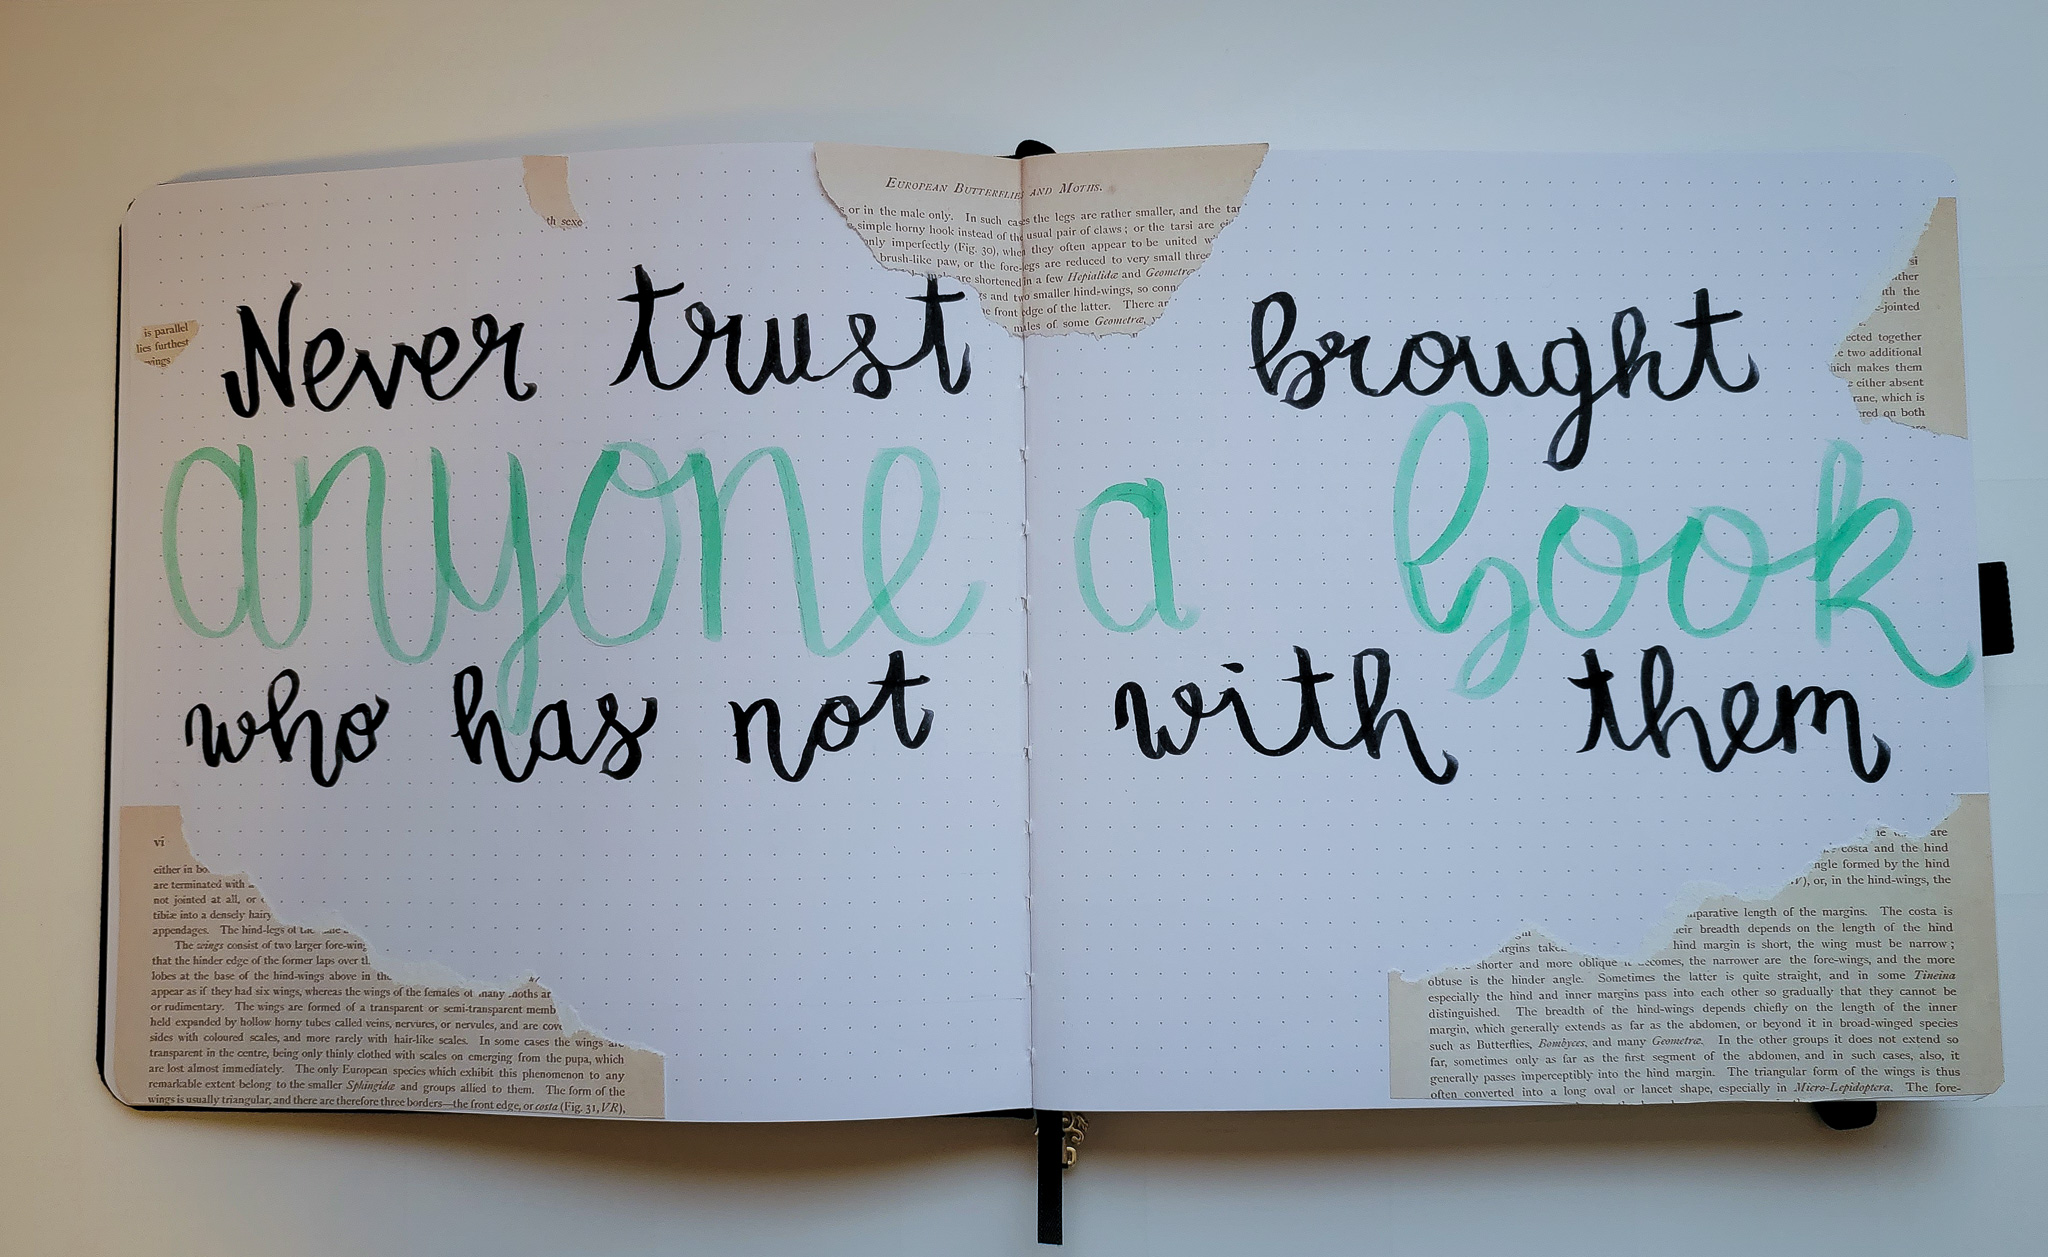 Never trust
anyone
who has not
brought
a book
with them
th sexe
is parallel
lies furthest
wings
EUROPEAN BUTTERFLIES AND MOTHS.
s or in the male only. In such cases the legs are rather smaller, and the tar
simple horny hook instead of the usual pair of claws; or the tarsi are
only imperfectly (Fig. 30), when they often appear to be united
brush-like paw, or the fore-legs are reduced to very small three
are shortened in a few Hepialidæ and Geometræ
gs and two smaller hind-wings, so conn
e front edge of the latter. There ar
males of some Geometræ,
si
ther
ith the
e-jointed
ected together
e two additional
hich makes them
either absent
rane, which is
ered on both
are
vi
either in bo
are terminated with
not jointed at all, or
tibiæ into a densely hairy
appendages. The hind-legs of
The wings consist of two larger fore-wing
that the hinder edge of the former laps over
lobes at the base of the hind-wings above in the
appear as if they had six wings, whereas the wings of the females of many moths ar
or rudimentary. The wings are formed of a transparent or semi-transparent memb
held expanded by hollow horny tubes called veins, nervures, or nervules, and are cov
sides with coloured scales, and more rarely with hair-like scales. In some cases the wings are
transparent in the centre, being only thinly clothed with scales on emerging from the pupa, which
are lost almost immediately. The only European species which exhibit this phenomenon to any
remarkable extent belong to the smaller Sphingidæ and groups allied to them. The form of the
wings is usually triangular, and there are therefore three borders—the front edge, or costa (Fig. 31, VR),
are
costa and the hind
ngle formed by the hind
V), or, in the hind-wings, the
mparative length of the margins. The costa is
eir breadth depends on the length of the hind
rgins take hind margin is short, the wing must be narrow;
shorter and more oblique it becomes, the narrower are the fore-wings, and the more
obtuse is the hinder angle. Sometimes the latter is quite straight, and in some Tineina
especially the hind and inner margins pass into each other so gradually that they cannot be
distinguished. The breadth of the hind-wings depends chiefly on the length of the inner
margin, which generally extends as far as the abdomen, or beyond it in broad-winged species
such as Butterflies, Bombyces, and many Geometræ. In the other groups it does not extend so
far, sometimes only as far as the first segment of the abdomen, and in such cases, also, it
generally passes imperceptibly into the hind margin. The triangular form of the wings is thus
often converted into a long oval or lancet shape, especially in Micro-Lepidoptera. The fore-